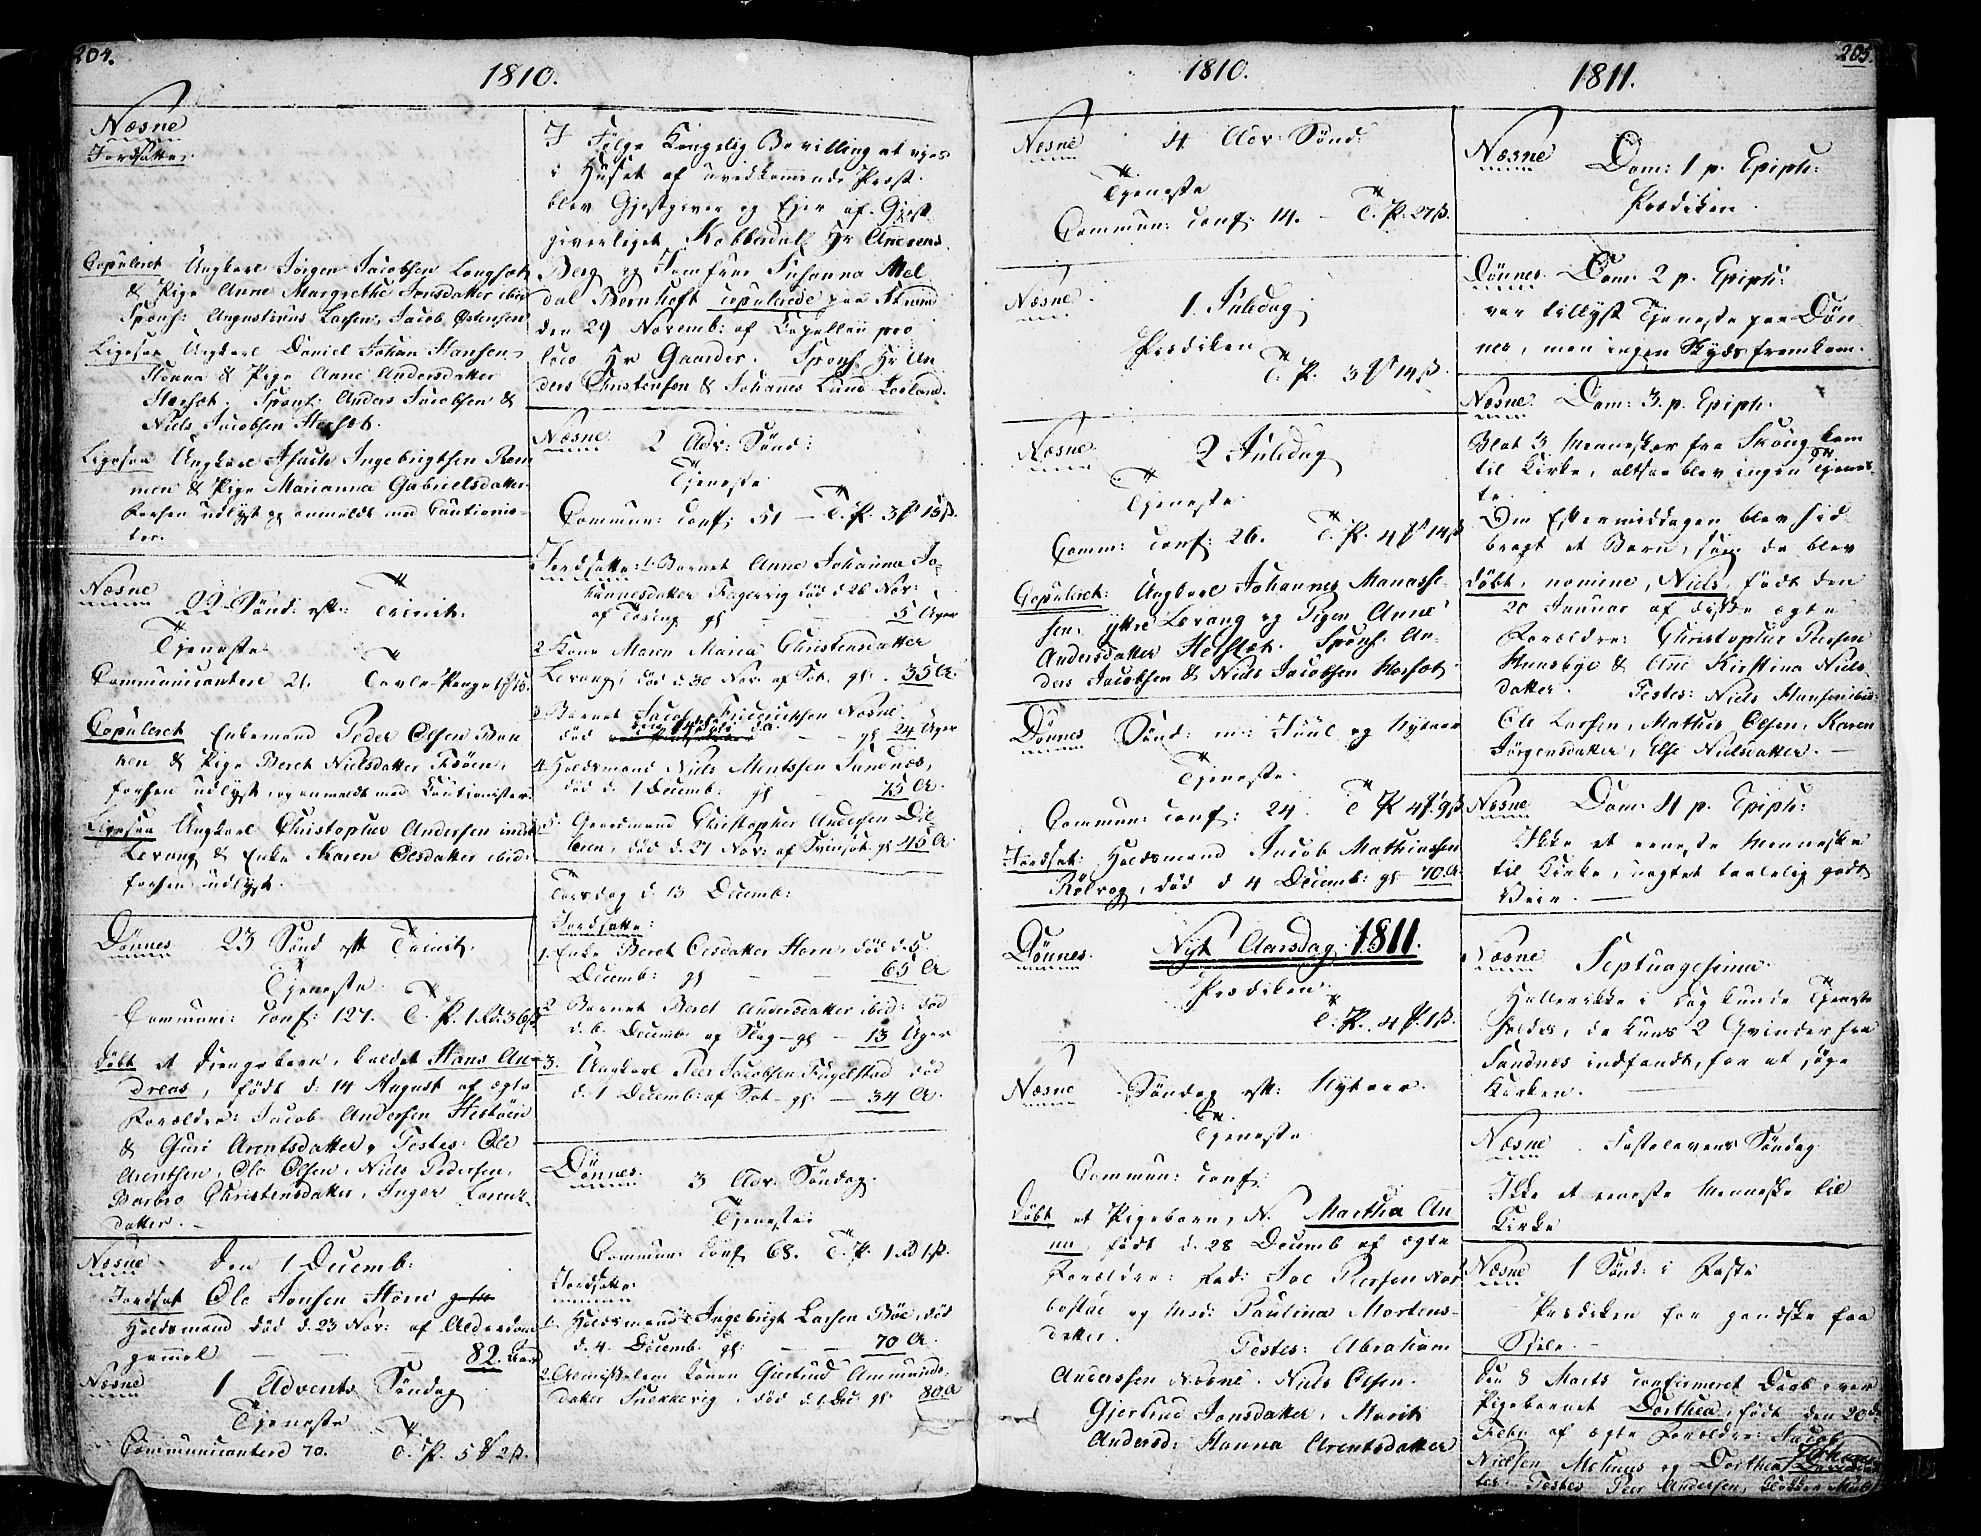 204.
1810.
Næsne
Jordfatte:
Copuleret Ungkarl Jörgen Jacobsen Langset
& Pige Anne Margrethe Jonsdatter ibid:
Spons: Augustinus Larsen, Jacob Østensen
Ligesaa Ungkarl Daniel Johan Hansen
& Pige Anne Andersdatter
Spons: Anders Jacobsen &
Niels Jacobsen Hersæt.
Ligesaa Ungkarl Isach Ingebrigtsen Rem
men & Pige Marianna Gabrielsdatter
forhen udlyst og anmeldt med Cautionis-
ter.
Næsne 22 Sönd: eft: Trinit:
Tjeneste
Communicantere 21. Tavle-Penge
Copuleret Enkemand Peder Olsen
& Pige Beret Nielsdatter
forhen udlyst, og anmeldt med Cautionister.
Ligesaa Ungkarl Christopher Andersen indre
Levang & Enke Maren Olsdatter ibid:
forhen udlyst.
Dönnes 23 Sönd eft Trinit:
Tjeneste
Communi: Conf: 127. T. P. 1 Rd. 3
Döbt et Drengebarn, kaldet Hans An-
dreas, födt d. 14 August af ægte
Forældre: Jacob Andersen
& Guri Arentsdatter, Testes: Ole
Arentsen, Ole Olsen, Niels Pedersen,
Barbro Christensdatter, Inger Lorentz-
datter. —
Næsne den 1 Decemb:
Jordfat Ole Jonsen Horn
Huusmand död d. 23 Nov: af Alderdom
gammel — — — 82. Aar
Næsne 1 Advents Söndag
Tjeneste
Communicantere 70. T. P. 5 2 ß.
I Følge Kongelig Bevilling at vies
i Huset af uvedkommende Præst
blev Gjestgiver og Ejer af Gjest
giverliget Kobberdal Hr
Berg og Jomfrue Susanna Mel
dal Bernhoft copulerede paa
den 29 Novemb: af Capellan pro
loco Hr Gaarder. Spons: Hr An
ders Christensen & Johannes Lund
Næsne 2 Adv: Sönd:
Tjeneste
Commun: Conf: 51 — T. P. 3 15 ß.
Jordfatte: 1. Barnet Anne Johanna Jo-
hannesdatter död d 26 Nov:
gl — — 5 Uger
2 Kone Maren Maria Christensdatter
Levang, död d. 30 Nov. af gl. 35 A.
3 Barnet Jacob Friderichsen Næsne
död gl 24 Uger
4 Huusmand Niels Mentzsen Sundnæs,
död d. 1 Decemb: gl — 75 A.
5. Gaardmand Christopher Andersen
död d. 27 Nov: af gl 45 A
Torsdag d. 13 Decemb:
Jordfatte:
1. Enke Beret Olsdatter Horn, död d. 5
Decemb: gl — — 65 A
2 Barnet Beret Andersdatter ibid: död
d. 6. Decemb af Slag — gl — 13 Uger
3. Ungkarl Peer Jacobsen död
d. 1 Decemb: af gl — 34 A.
Dönnes 3 Adv: Söndag
Tjeneste:
Commun: Conf 68. T. P. 1 Rd 1 ß.
Jordfatte
1. Huusmand Ingebrigt Larsen Böe, död
d. 4. Decemb. gl: — — 70 A.
2. Konen Gjertrud Ammunds-
datter död d. 1 Dec gl 80 A
1810.
Næsne 4 Adv: Sönd:
Tjeneste
Commun: Conf: 14. — T. P. 27 ß.
Næsne 1 Juledag
Prædiken
T. P. 3 14 ß.
Næsne 2 Juledag
Tjeneste
Comm: Conf: 26. T. P. 4 14 ß
Copuleret: Ungkarl Johannes Manasse-
sen, yttre Levang og Pigen Anne
Andersdatter Hersæt. Spons: An-
ders Jacobsen & Niels Jacobsen Hersæt
Dönnes Sönd: m: Juul og Nytaar
Tjeneste.
Commun: Conf: 24 T. P. 4 9 ß
Jordfat: Huusmand Jacob Mathiassen
Rölvog, död d 4 Decemb: gl 70 A.
Dönnes. Nyt Aarsdag 1811.
Prædiken
T. P. 4 1 ß.
Næsne Söndag eft: Nytaar.
Tjeneste
Commun: Conf:
Döbt et Pigebarn, N. Martha An
na, födt d. 28 Decemb af ægte
Forældre: Fad: Joe Persen
og Mod: Paulina Mortens-
datter. Testes: Abraham
Anderssen Næsne, Niels Olsen.
Gjertrud Jonsdatter, Marit
Andersd: Hanna Arentsdatter
205.
1811.
Næsne Dom: 1 p. Epiph:
Prædiken
Dönnes Dom: 2 p. Epiph:
var tillyst Tjeneste paa Dön
nes, men ingen Skyds fremkom.
Næsne. Dom: 3. p. Epiph:
Blot 3 Mennesker fra kom
til Kirke, altsaa blev ingen Tjenes-
te.
Om Eftermiddagen blev hid-
bragt et Barn, som da blev
döbt, nomine, Niels, födt den
20 Januar af ægte
Forældre: Christopher Persen
Hunsbye & Ane Kirstina Niels-
datter. Testes: Niels Hansen ibid:
Ole Larsen, Mathis Olsen, Karen
Jörgensdatter, Else Nielsdatter. —
Næsne Dom: 4 p. Epiph:
Ikke et eeneste Menneske
til Kirke, uagtet taalelig godt
Veir. —
Næsne Septuagesima.
Hellerikke i Dag kunde Tjeneste
holdes, da kuns 2 Qvinder fra
Sandnes indfandt, for at söge
Kirken.
Næsne. Fastelavens Söndag
Ikke et eeneste Menneske til
Kirke
Næsne 1 Sönd: i Faste
Prædiken for gandske faa
Sjele.
Den 8 Marts confirmeret Daab over
Pigebarnet Dorthea, födt den 20de
Febr af ægte Forældre: Jacob
Nielsen og Dorthea
Testes Peer Andersen,